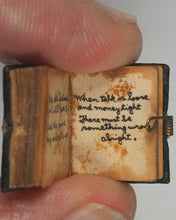 When talk is loose
and money tight
There must be
something wrong
alright.